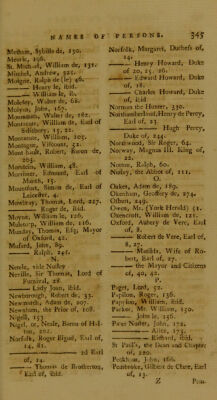 NAMES OF PERSONS. 345
Metham, Sybille de, 150.
Meuric, 196.
St. Michael, William de, 151.
Mitchel, Andrew, 325.
Molgate, Ralph de (le) 46.
—— Henry le, ibid.
—— William le, ib.
Moheley, Walter de, 68.
Molyns, John, 167.
Mounteney, Walter de, 182.
Montacute, William de, Earl of
Salisbury, 15, 51.
Montanite, William, 203.
Montague, Viscount, 52.
Mont hault, Robert, Baron de,
203.
Marsden, William, 48.
Mortimer, Edmund, Earl of
March, 15.
Mountfort, Simon de, Earl of
Leicester, 4.
Mowbray, Thomas, Lord, 227.
—— Roger de, ibid.
Moyne, William le, 126.
Mulsterp, William de, 116.
Munday, Thomas, Esq; Mayor
of Oxford, 42.
Musard, John, 89.
—— Ralph, 256.
N.
Nemle, vide Nusley
Nerille, Sir Thomas, Lord of
Furnival, 28.
—— Lady Joan, ibid.
Newborough, Robert de, 33.
Newmarch, Adam de, 207.
Newnham, the Prior of, 108.
Nigell, 153.
Nigel, or Neale, Baron of Hal-
ton, 202.
Norfolk, Roger Bigod, Earl of,
81.
—— 2d Earl
of, 14.
—— Thomas de Brotherton,
Earl of, ibid.
Norfolk, Margaret, Duchess of,
14.
—— Henry Howard, Duke
of 20, 25, 26.
—— Edward Howard, Duke
of, 18.
—— Charles Howard, Duke
of, ibid
Norman the Hunter, 330.
Northumberland, Henry de Percy,
Earl of, 23.
—— Hugh Percy,
Duke of, 24.
Northwood, Sir Roger, 64.
Norway, Magnus III. King of,
22.
Notton, Ralph, 60.
Nutley, the Abbot of, 111.
O.
Oakes, Adam de, 189.
Okenham, Geoffery de, 274.
Osbert, 249.
Owen, Mr. (York Herald) 51.
Oxencroft, William de, 121.
Oxford, Aubery de Vere, Earl
of, 8.
—— Robert de Vere, Earl of,
8, 27.
—— Matilda, Wife of Ro-
bert, Earl of, 27.
—— the Mayor and Citizens
of, 40, 42.
P.
Paget, Lord, 52.
Papilon, Roger, 136.
Papylion, William, ibid.
Parker, Mr. William, 130.
—— John le, 136.
Pater Noster, John, 172.
—— Alice, 173.
—— Richard, ibid.
St Paul's, the Dean and Chapter
of, 220.
Peckham, John, 166.
Pembroke, Gilbert de Clare, Earl
of, 13.
Z Pem-